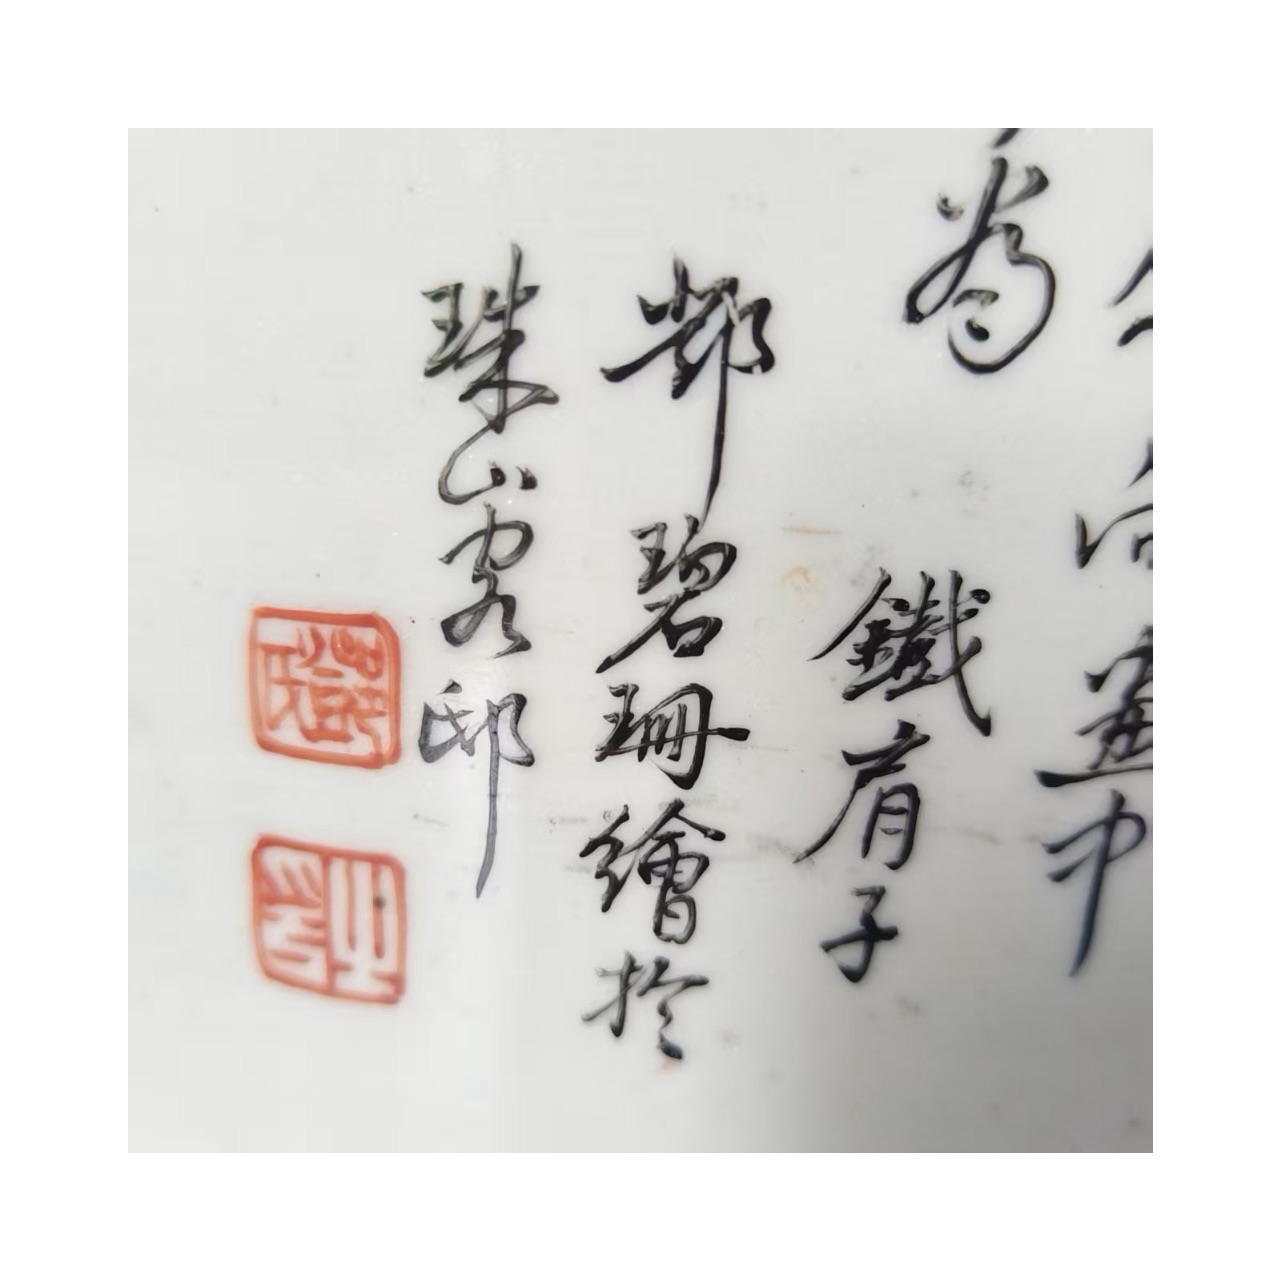 向畫中
為
鐵肩子
鄧碧珊繪於
珠山客邸